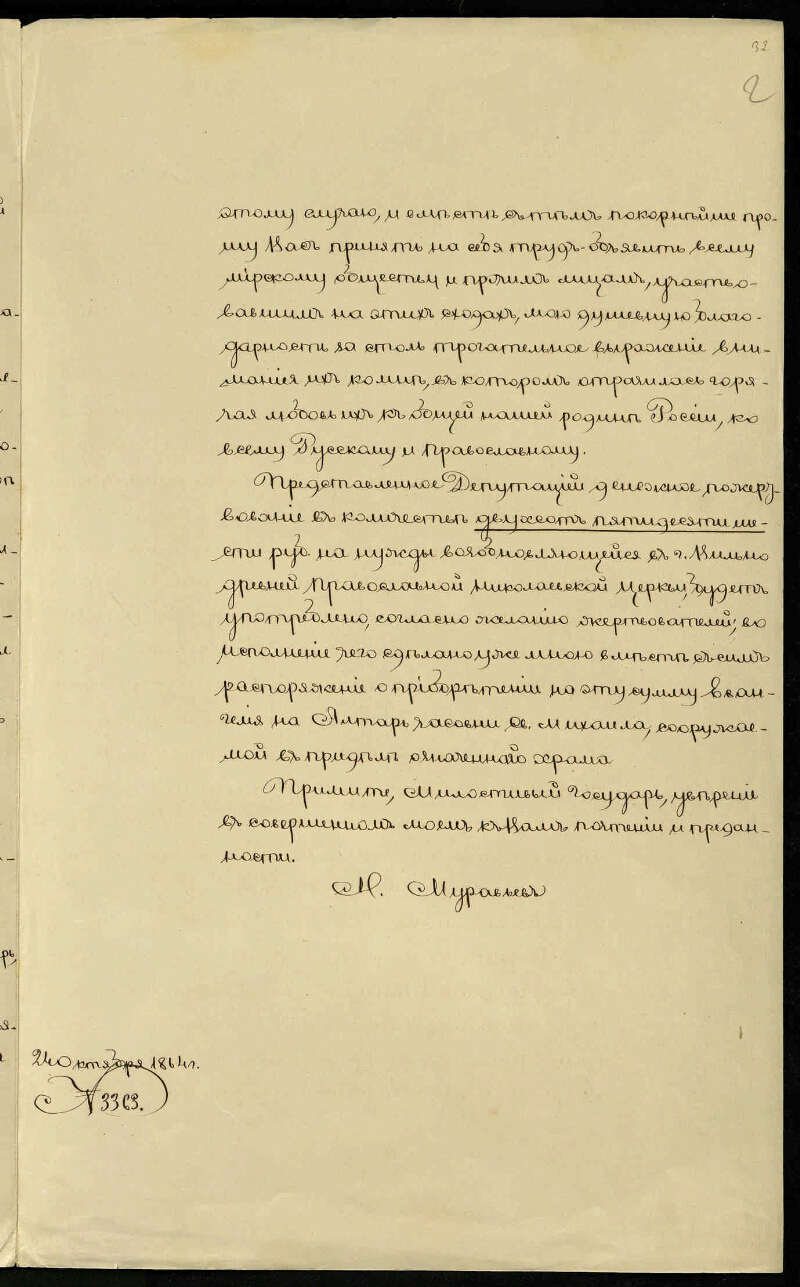 32
2
этому случаю, и вмѣстѣ съ тѣмъ покорнѣйше про-
шу Васъ принять на себя трудъ - объявить всему
мірскому обществу и прочимъ лицамъ, участво-
вавшимъ на этихъ сходахъ, мою душевную благо-
дарность за столь трогательное выраженіе вни-
манія ихъ ко мнѣ, въ которомъ отразилась горя-
чая любовь ихъ къ общей нашей родинѣ Россіи, ко
всему Русскому и Православному.
Представленное Депутаціей денежное пожерт-
вованіе въ количествѣ двухсотъ пятидесяти ше-
сти руб. на нужды возобновляющейся въ г. Вильно
древней Православной Николаевской Церкви, будетъ
употреблено, согласно желанію жертвователей; во
исполненіе чего сдѣлано уже мною вмѣстѣ съ симъ
распоряженіе о пріобрѣтеніи на эту сумму Еван-
гелія на Алтарь часовни Св. Михаила, сооружае-
мой въ придѣлѣ означеннаго храма.
Примите, Милостивый Государь, увѣреніе
въ совершенномъ моемъ къ Вамъ почтеніи и предан-
ности.
М. Муравьевъ
Октября 1864 г.
№ 3363.